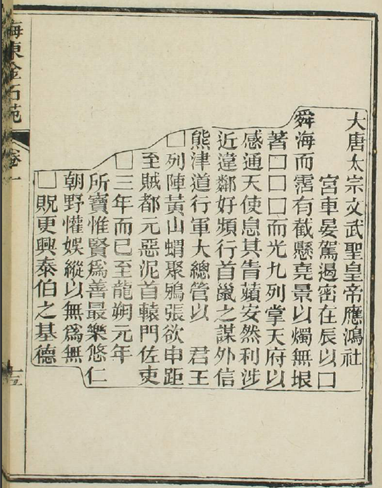 大唐太宗文武聖皇帝應鴻社
宮車晏駕遏密在辰以□
舜海而霑有截懸堯景以燭無垠
著□□□而光九列掌天府以
感通天使息其眚蘋安然利涉
近違鄰好頻行首鼠之謀外信
熊津道行軍大總管以 君王
□列陣黃山蝟聚鴟張欲申距
至賊都元惡泥首轅門佐吏
□三年而已至龍朔元年
所寶惟賢爲善最樂悠仁
朝野懽娛縱以無爲無
□貺更興泰伯之基德
海東金石苑 卷一